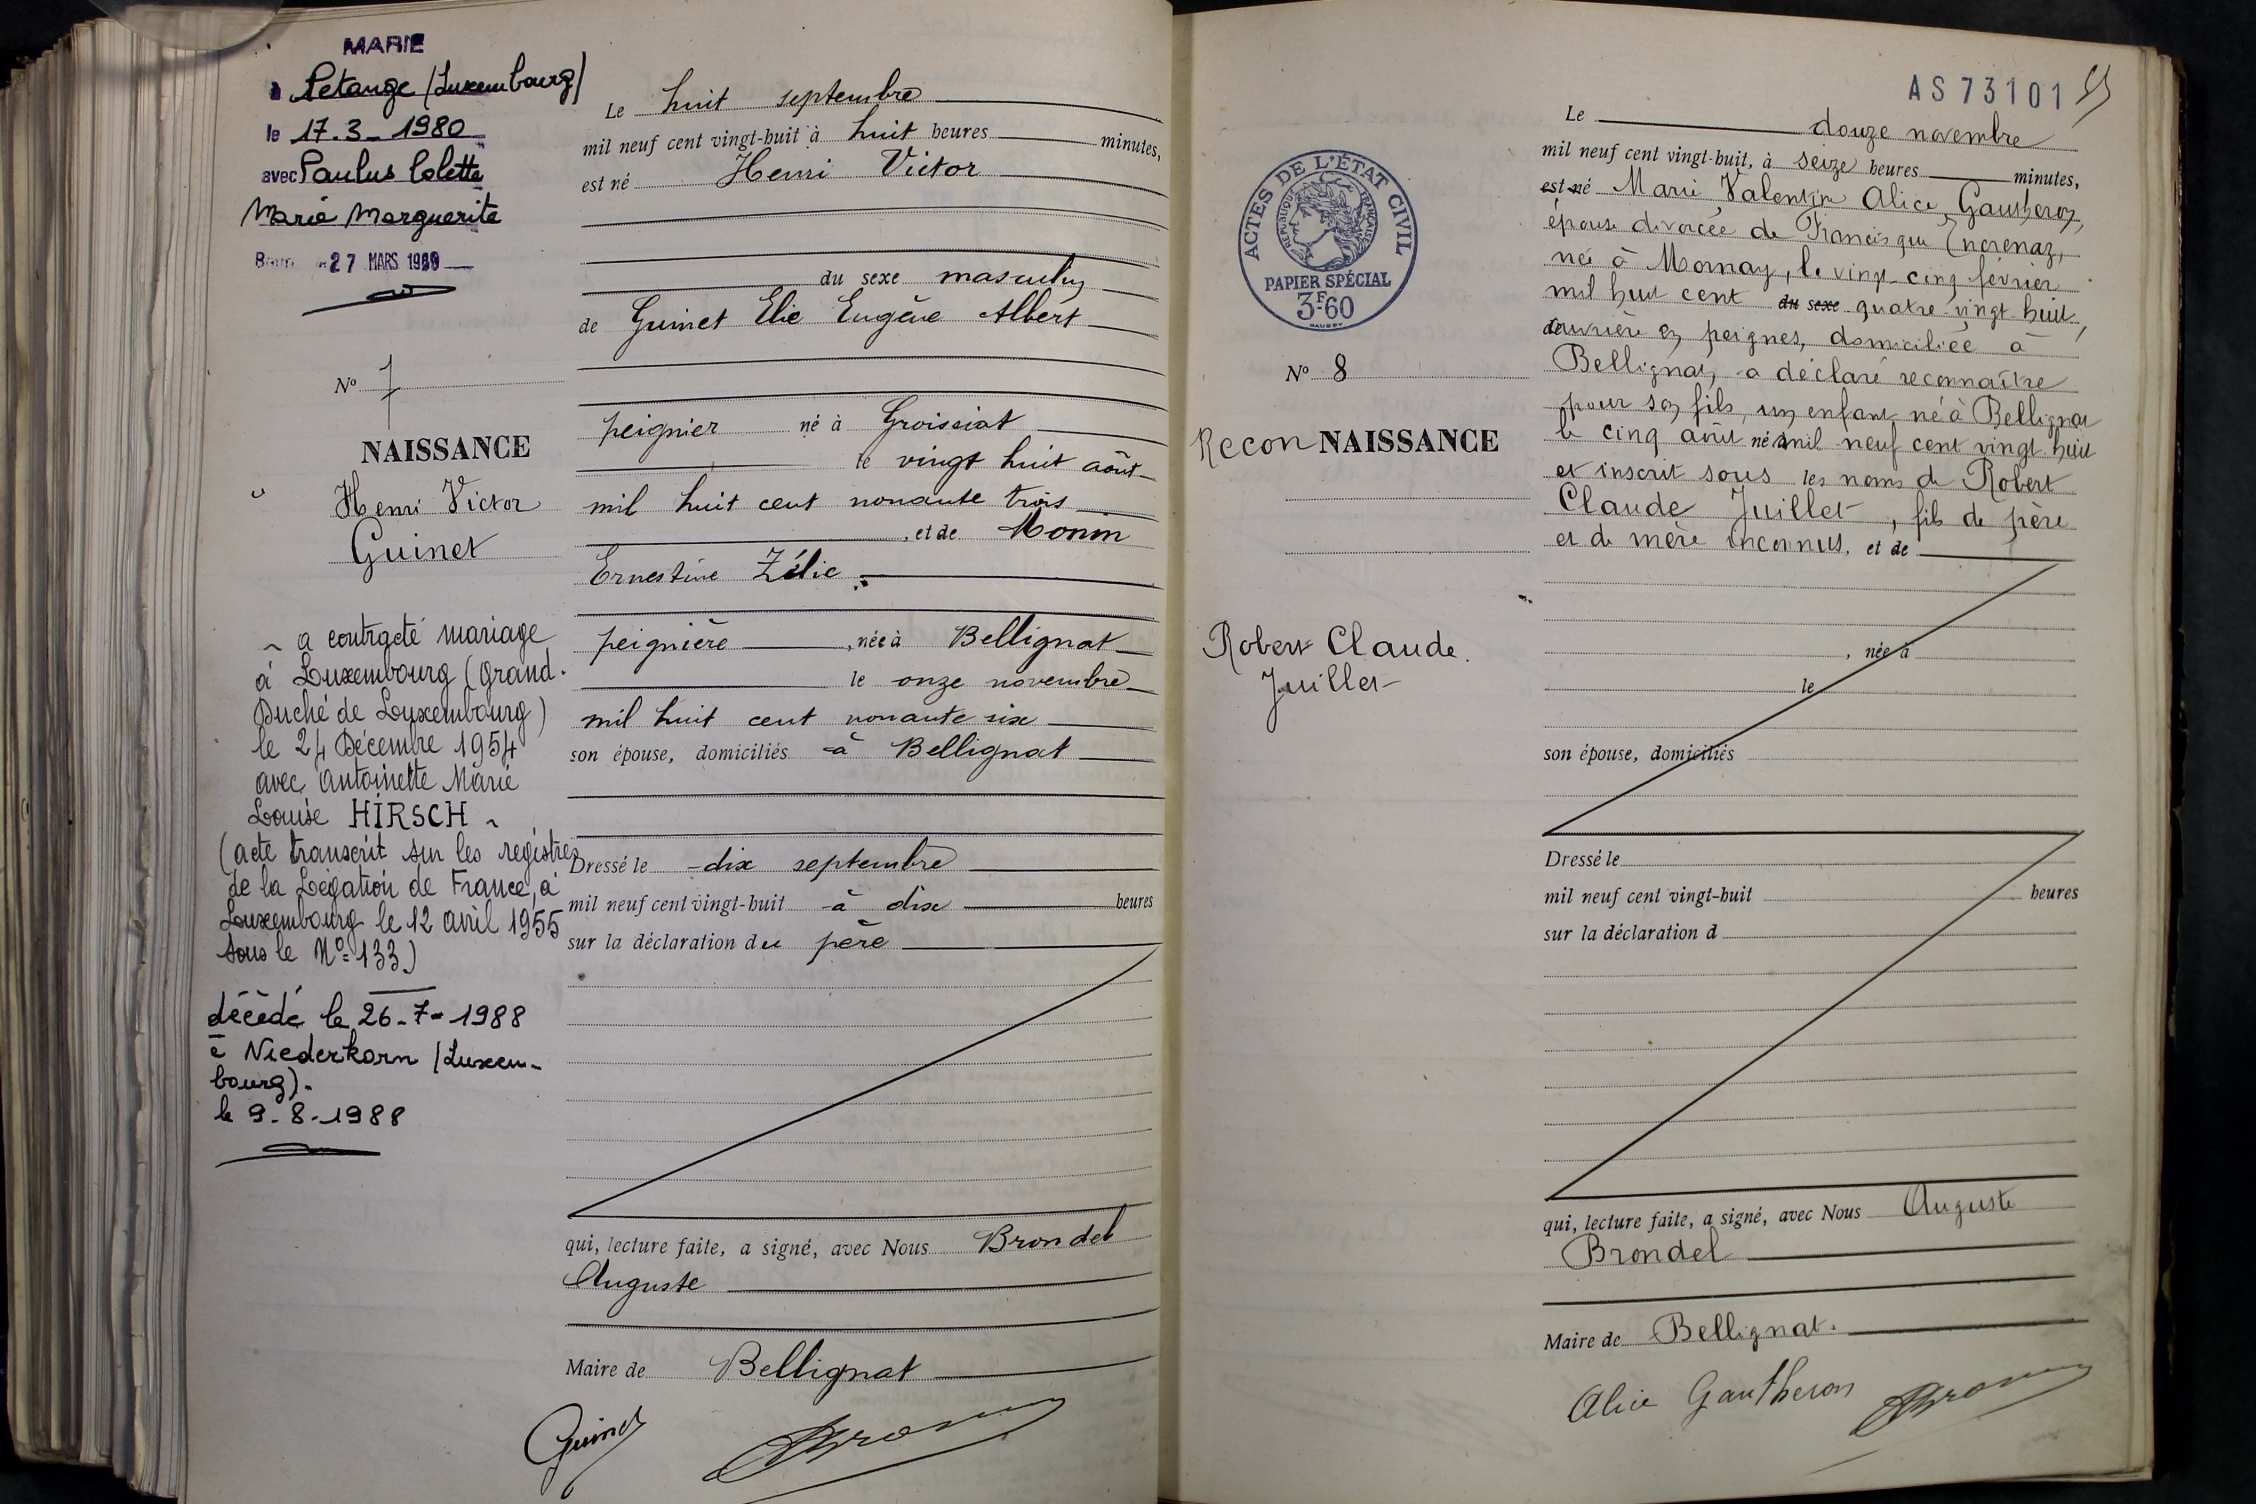 MARIE
à Petange (Luxembourg)
le 17.3_1980
avec Paulus Colette
Marie Marguerite
27 MARS 1980
N° 7
NAISSANCE
Henri Victor
Guinet
a contracté mariage
à Luxembourg (Grand.
Duché de Luxembourg)
le 24 Décembre 1954
avec Antoinette Marie
Louise HIRSCH
(acte transcrit sur les registres
de la Légation de France, à
Luxembourg le 12 avril 1955
sous le N° 133)
décédé le 26_7_1988
à Niederkorn (Luxem-
bourg).
le 9.8.1988
Le huit septembre
mil neuf cent vingt-huit à huit heures minutes,
est né Henri Victor
du sexe masculin
de Guinet Elie Eugène Albert
peignier né à Groissiat
le vingt huit août
mil huit cent nonante trois
, et de Monin
Ernestine Zélie
peignière , née à Bellignat
le onze novembre
mil huit cent nonante six
son épouse, domiciliés à Bellignat
Dressé le dix septembre
mil neuf cent vingt-huit à dix heures
sur la déclaration du père
qui, lecture faite, a signé, avec Nous Brondel
Auguste
Maire de Bellignat
Guinet
AS 73101
ACTES DE L'ÉTAT CIVIL
RÉPUBLIQUE FRANÇAISE
PAPIER SPÉCIAL
3F60
N° 8
Recon NAISSANCE
Robert Claude
Juillet
Le douze novembre
mil neuf cent vingt-huit, à seize heures minutes,
est né Marie Valentin Alice Gautheron,
épouse divorcée de Francisque
née à Mornay, le vingt cinq février
mil huit cent du sexe quatre vingt huit,
de ouvrière en peignes, domiciliée à
Bellignat, a déclaré reconnaître
pour son fils, un enfant né à Bellignat
le cinq août né à mil neuf cent vingt huit
et inscrit sous les noms de Robert
Claude Juillet, fils de père
et de mère inconnus, et de
, née à
le
son épouse, domiciliés
Dressé le
mil neuf cent vingt-huit heures
sur la déclaration d
qui, lecture faite, a signé, avec Nous Auguste
Brondel
Maire de Bellignat.
Alice Gautheron